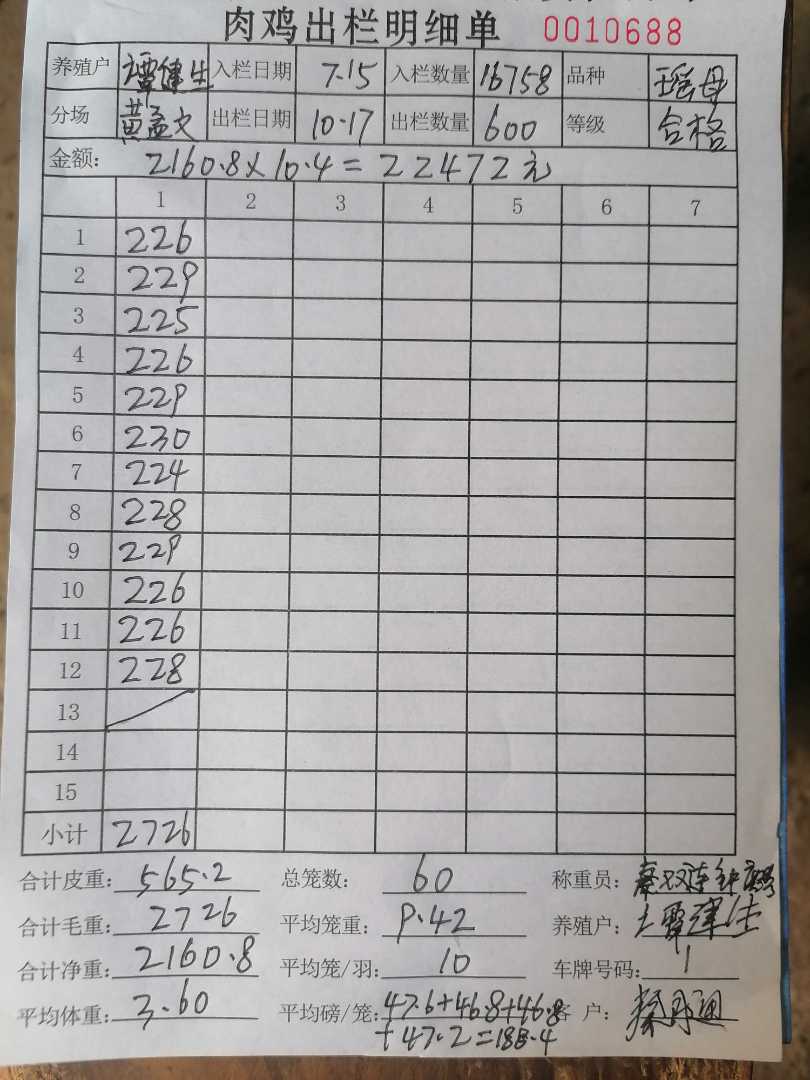 肉鸡出栏明细单 0010688
养殖户 谭健生 入栏日期 7.15 入栏数量 16758 品种 瑶母
分场 黄孟文 出栏日期 10.17 出栏数量 600 等级 合格
金额: 2160.8×10.4=22472元
1 2 3 4 5 6 7
1 226
2 229
3 225
4 226
5 229
6 230
7 224
8 228
9 229
10 226
11 226
12 228
13
14
15
小计 2726
合计皮重: 565.2 总笼数: 60 称重员:
合计毛重: 2726 平均笼重: 9.42 养殖户: 谭健生
合计净重: 2160.8 平均笼/羽: 10 车牌号码: 1
平均体重: 3.60 平均磅/笼: 47.6+46.8+46.8 客户:
+47.2=188.4